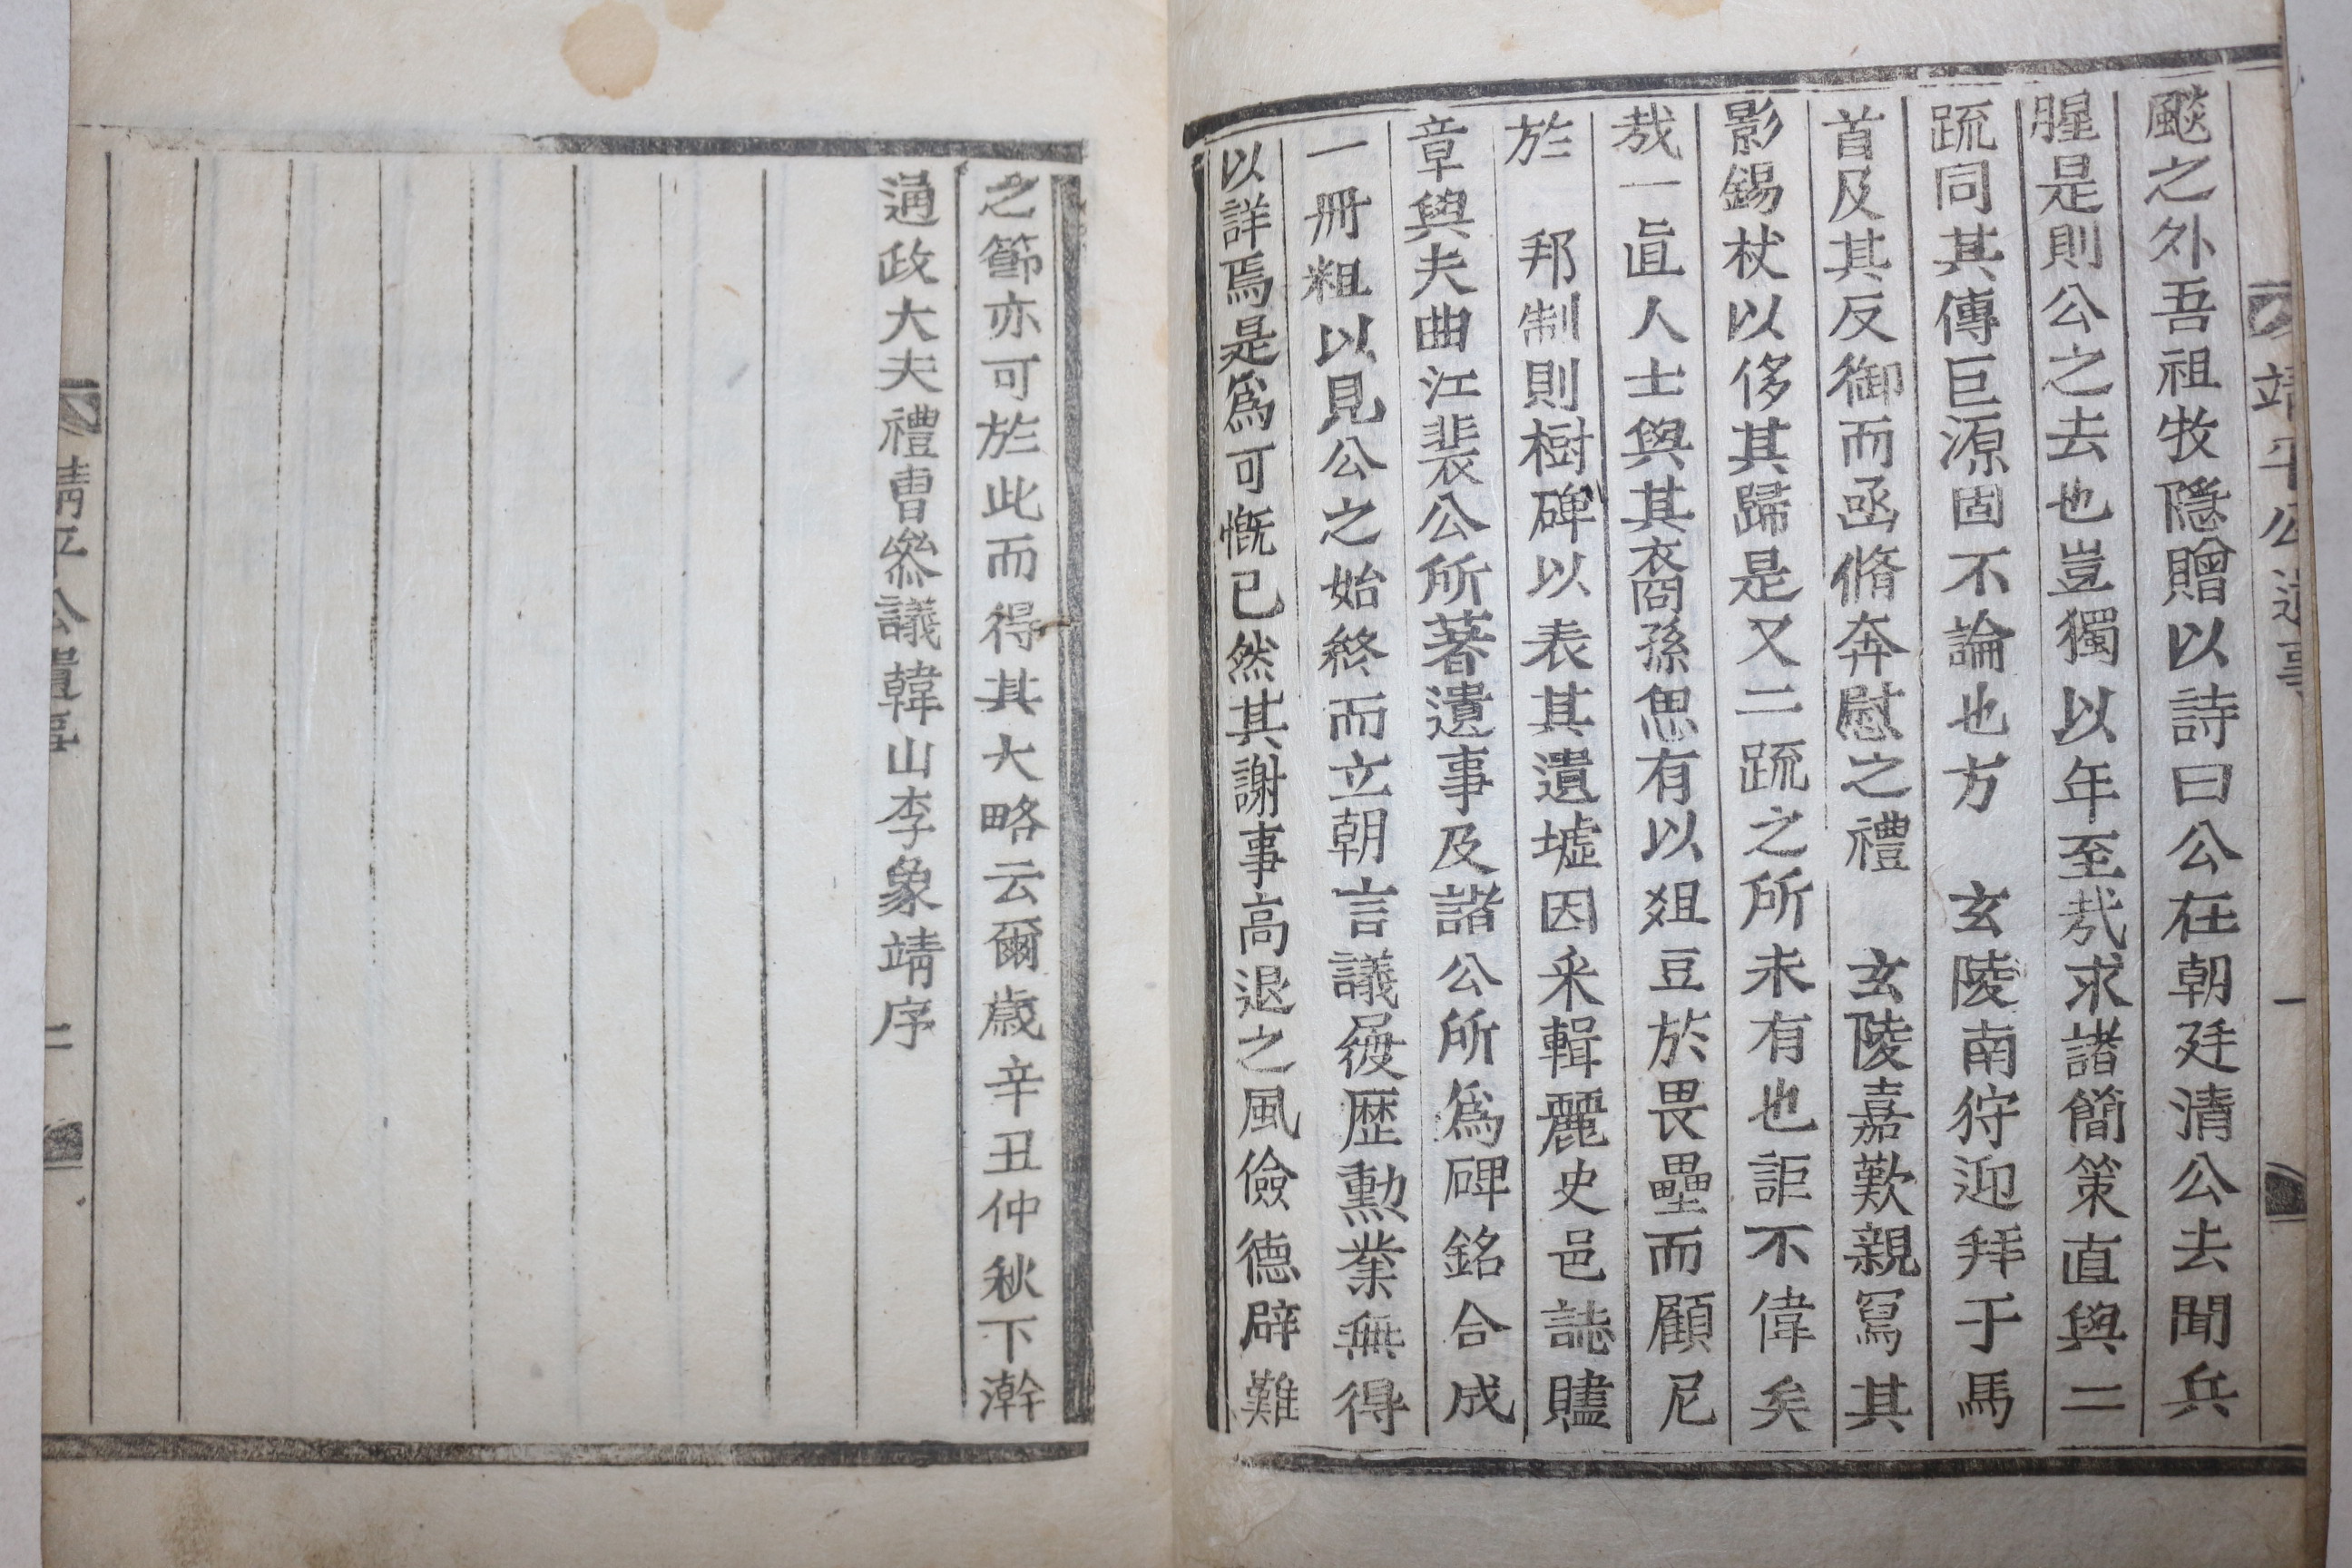 靖平公遺事
一
飈之外吾祖牧隱贈以詩曰公在朝廷清公去聞兵
腥是則公之去也豈獨以年至哉求諸簡策直與二
疏同其傳巨源固不論也方　玄陵南狩迎拜于馬
首及其反御而函脩奔慰之禮　玄陵嘉歎親寫其
影錫杖以侈其歸是又二疏之所未有也詎不偉矣
哉一直人士與其裔孫思有以俎豆於畏壘而顧尼
於　邦制則樹碑以表其遺墟因采輯麗史邑誌贐
章與夫曲江裴公所著遺事及諸公所爲碑銘合成
一冊粗以見公之始終而立朝言議履歷勳業無得
以詳焉是爲可慨已然其謝事高退之風儉德辟難
之節亦可於此而得其大略云爾歲辛丑仲秋下澣
通政大夫禮曹叅議韓山李象靖序
靖平公遺事
二